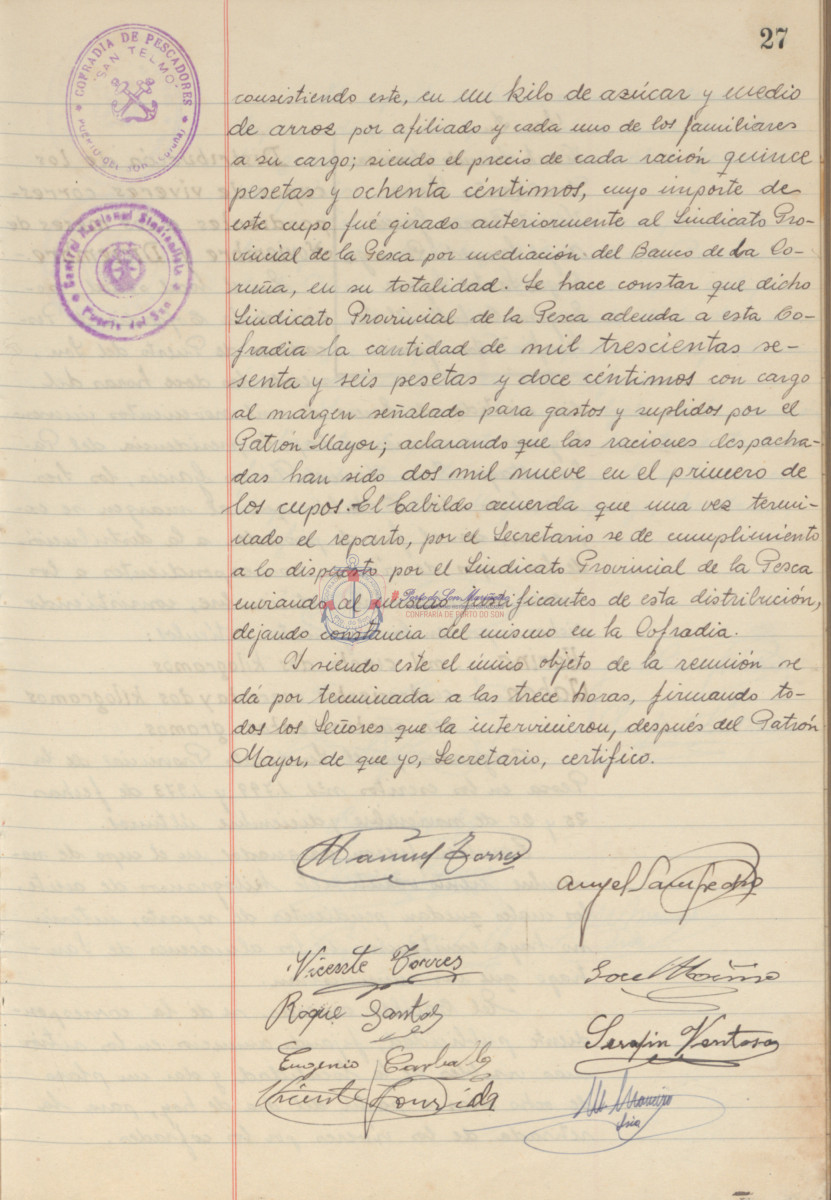 27
COFRADIA DE PESCADORES
"SAN TELMO"
PUERTO DEL SON (CORUÑA)
Central Nacional Sindicalista
Puerto del Son
consistiendo este, en un kilo de azúcar y medio
de arroz por afiliado y cada uno de los familiares
a su cargo; siendo el precio de cada ración quince
pesetas y ochenta céntimos, cuyo importe de
este cupo fué girado anteriormente al Sindicato Pro-
vincial de la Pesca por mediación del Banco de La Co-
ruña, en su totalidad. Se hace constar que dicho
Sindicato Provincial de la Pesca adeuda a esta Co-
fradia la cantidad de mil trescientas se-
senta y seis pesetas y doce céntimos con cargo
al margen señalado para gastos y suplidos por el
Patrón Mayor; aclarando que las raciones despacha-
das han sido dos mil nueve en el primero de
los cupos. El Cabildo acuerda que una vez termi-
nado el reparto, por el Secretario se de cumplimiento
a lo dispuesto por el Sindicato Provincial de la Pesca
enviando al mismo justificantes de esta distribución,
dejando constancia del mismo en la Cofradia.
Y siendo este el único objeto de la reunión se
dá por terminada a las trece horas, firmando to-
dos los Señores que la intervinieron, después del Patrón
Mayor, de que yo, Secretario, certifico.
CONFRARÍA DE PORTO DO SON
Manuel Torres
Angel Sampedro
Vicente Torres
Roque Santos
Serafin Ventoso
Eugenio Carballo
Vicente